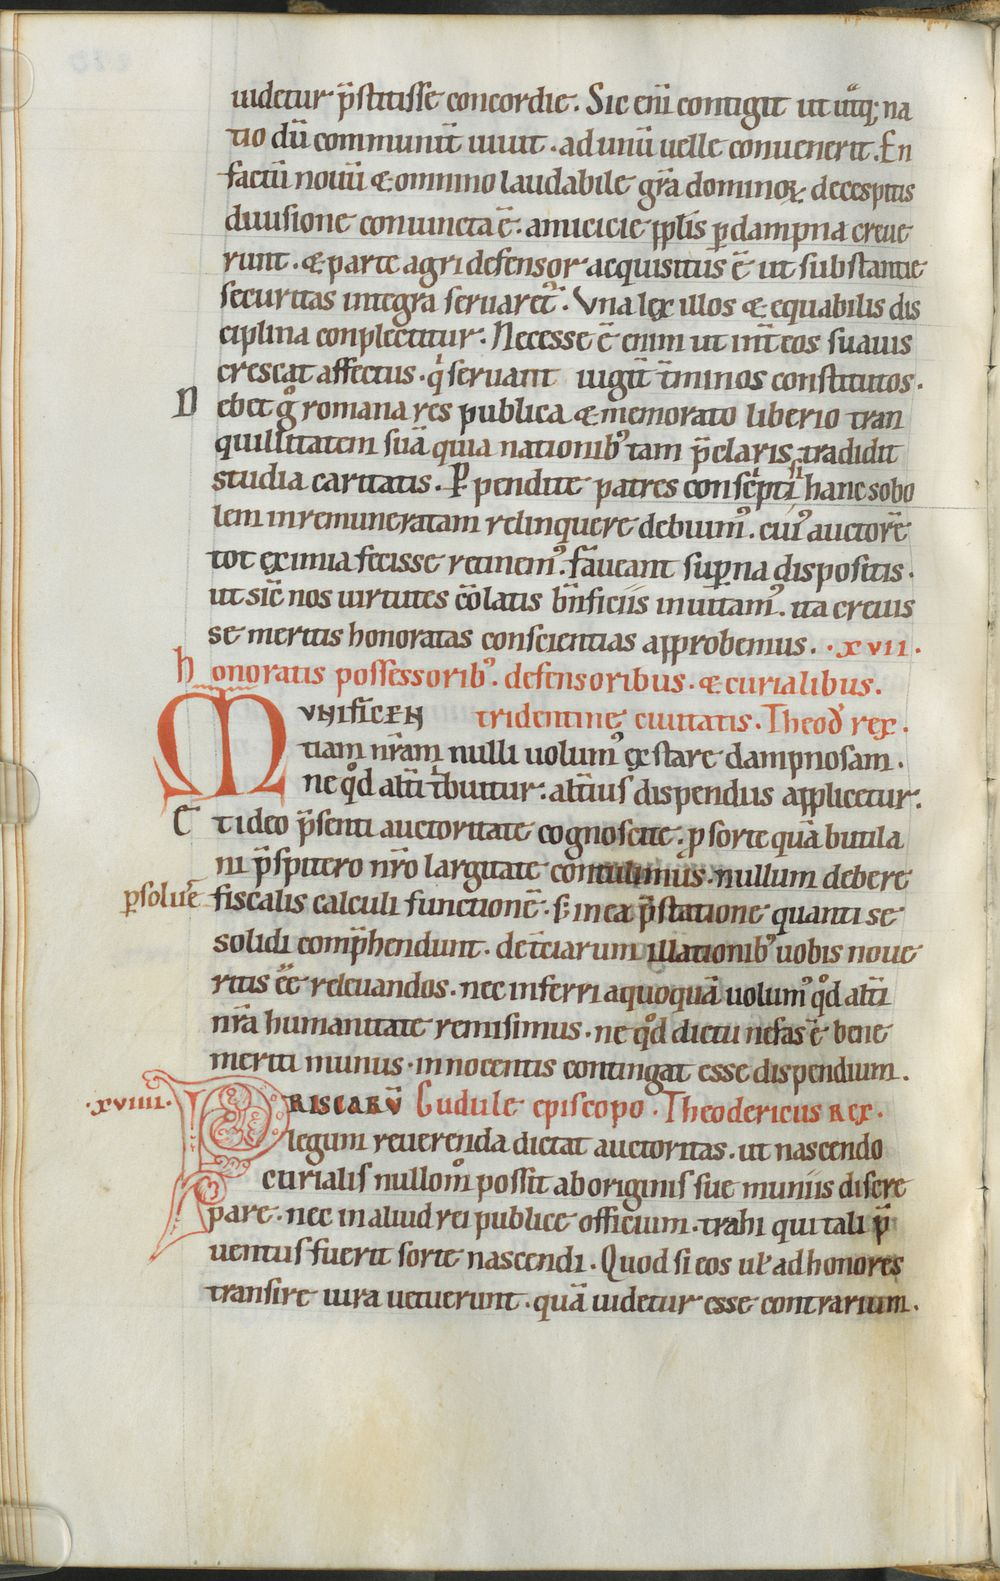 uidetur p̄stitisse concordie. Sic eni̅ contigit ut ut̊q; na
tio du̅ communit̅ uiuit. ad unu̅ uelle conuenerit. En
factu̅ nouu̅ & omnino laudabile gr̅a dominoꝝ de cespitis
diuisione coniuncta e̅. amicicie ꝓplis ꝑ dampna creue
runt. & parte agri defensor acquisitus e̅ ut substantie
securitas integra seruaret᷑. Vna lex illos & equabilis dis
ciplina conplectitur. Necesse e̅ enim ut int̅ eos suauis
crescat affectus. qͥ seruant iugit̅ t̅minos constitutos.
D ebet gͦ romana res publica & memorato liberio tran
quillitatem sua̅ quia nationibꝰ tam p̄claris tradidit
studia caritatis. Ꝑpendite patres conscͥpti si hanc sobo
lem inremuneratam relinquere debuimꝰ. cuiꝰ auctore̅
tot eximia fecisse retinemꝰ. faueant suꝑna dispositis.
ut sic̅ nos uirtutes co̅latis bn̅ficiis inuitamꝰ. ita creuis
se meritis honoratas conscientias approbemus. .xvii.
honoratis possessoribꝰ. defensoribus. & curialibus.
MVNIFICEN tridentinę ciuitatis. Theod̅ rex.
tiam nr̅am nulli uolumꝰ exstare dampnosam.
ne qͦd alt̅i tͥbuitur. alt̅ius dispendiis applicetur.
E t ideo p̄senti auctoritate cognoscite. ꝓ sorte qua̅ butila
ni p̄spitero nr̅o largitate contulimus. nullum debere
ꝑsolue̅ fiscalis calculi functione̅. s; in ea p̄statione quanti se
solidi comp̄hendunt. de t̅ciarum illationibꝰ uobis noue
ritis ee̅ releuandos. nec inferri a quoqua̅ uolumꝰ qͦd alt̅i
nr̅a humanitate remisimus. ne qͦd dictu nefas e̅ bene
meriti munus. innocentis contingat esse dispendium.
.xviiii. PRISCARV̅ Gudule episcopo. Theodericus REX.
legum reuerenda dictat auctoritas. ut nascendo
curialis nullo mͦ possit ab originis sue muniis discre
pare. nec in aliud rei publice officium. trahi qui tali p̄
uentus fuerit sorte nascendi. Quod si eos uł ad honores
transire iura uetuerunt. qua̅ uidetur esse contrarium.